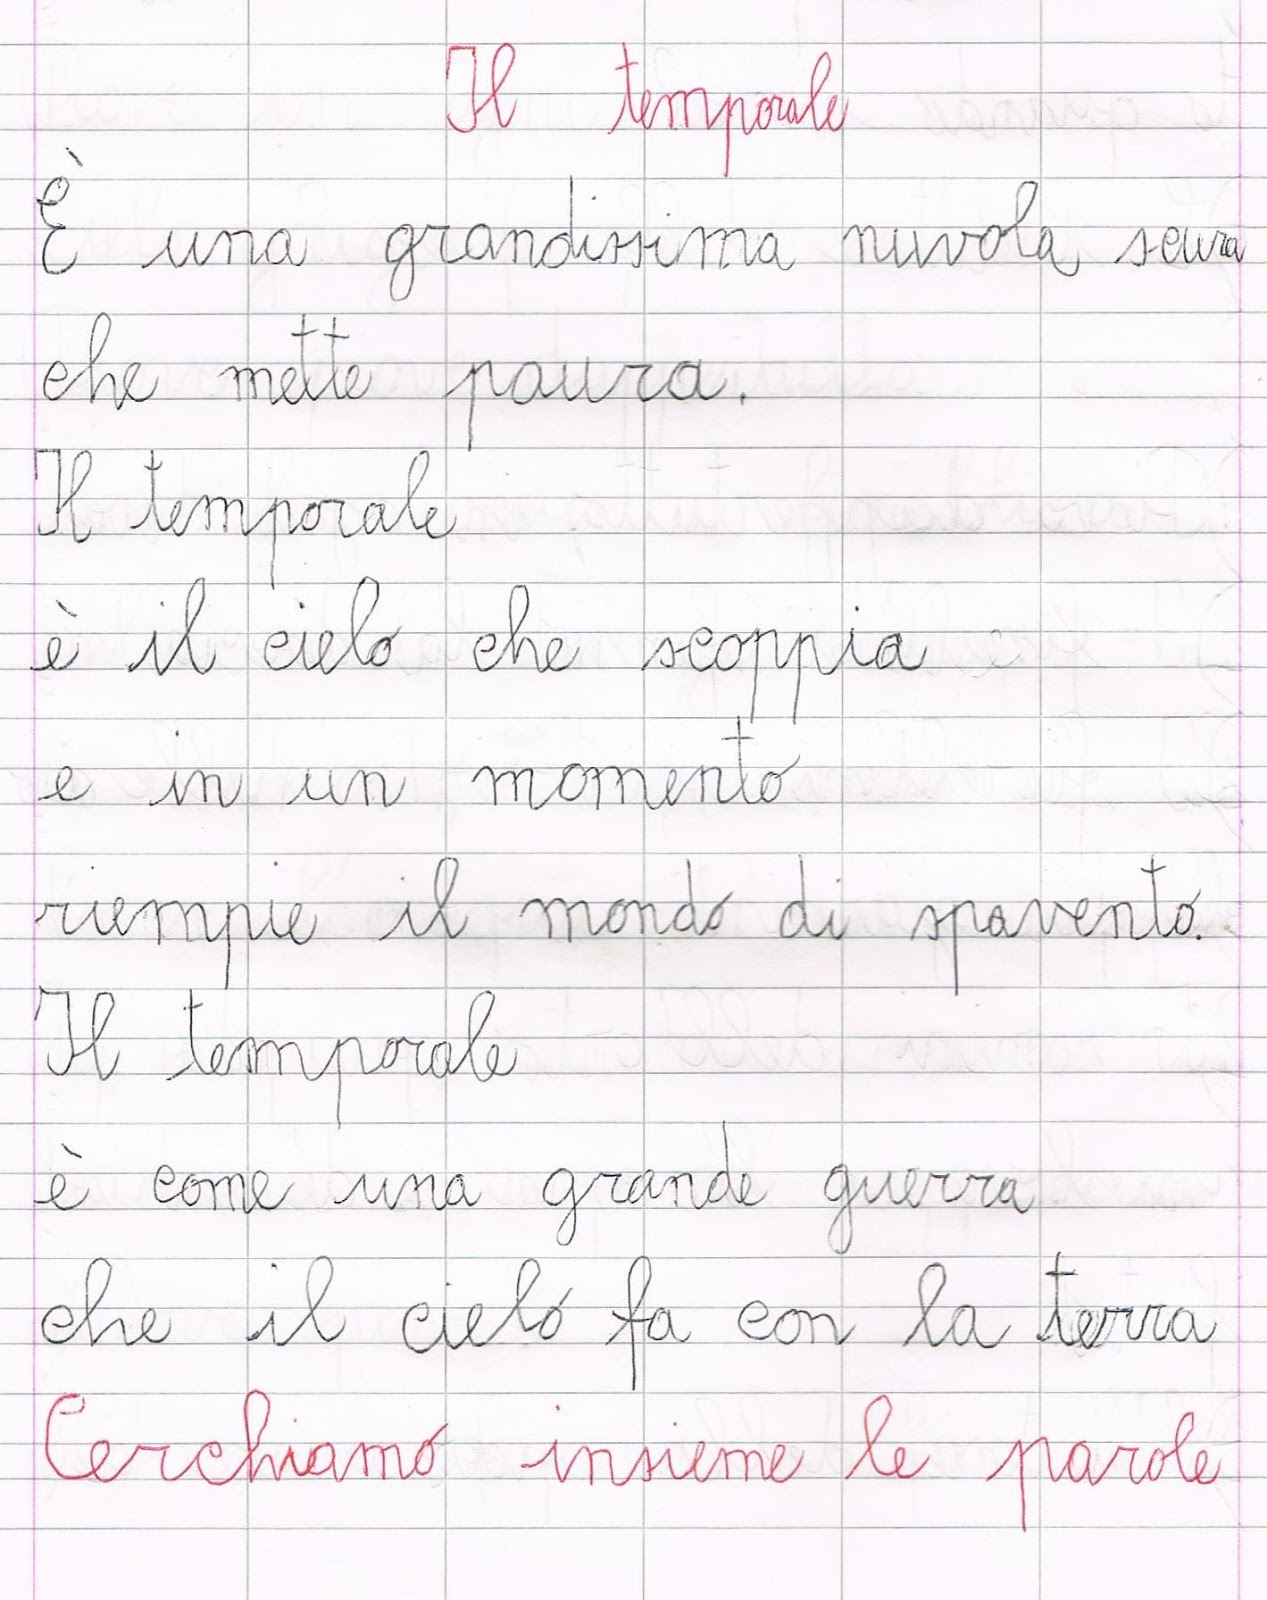 Il temporale
È una grandissima nuvola scura
che mette paura.
Il temporale
è il cielo che scoppia
e in un momento
riempie il mondo di spavento.
Il temporale
è come una grande guerra
che il cielo fa con la terra
Cerchiamo insieme le parole